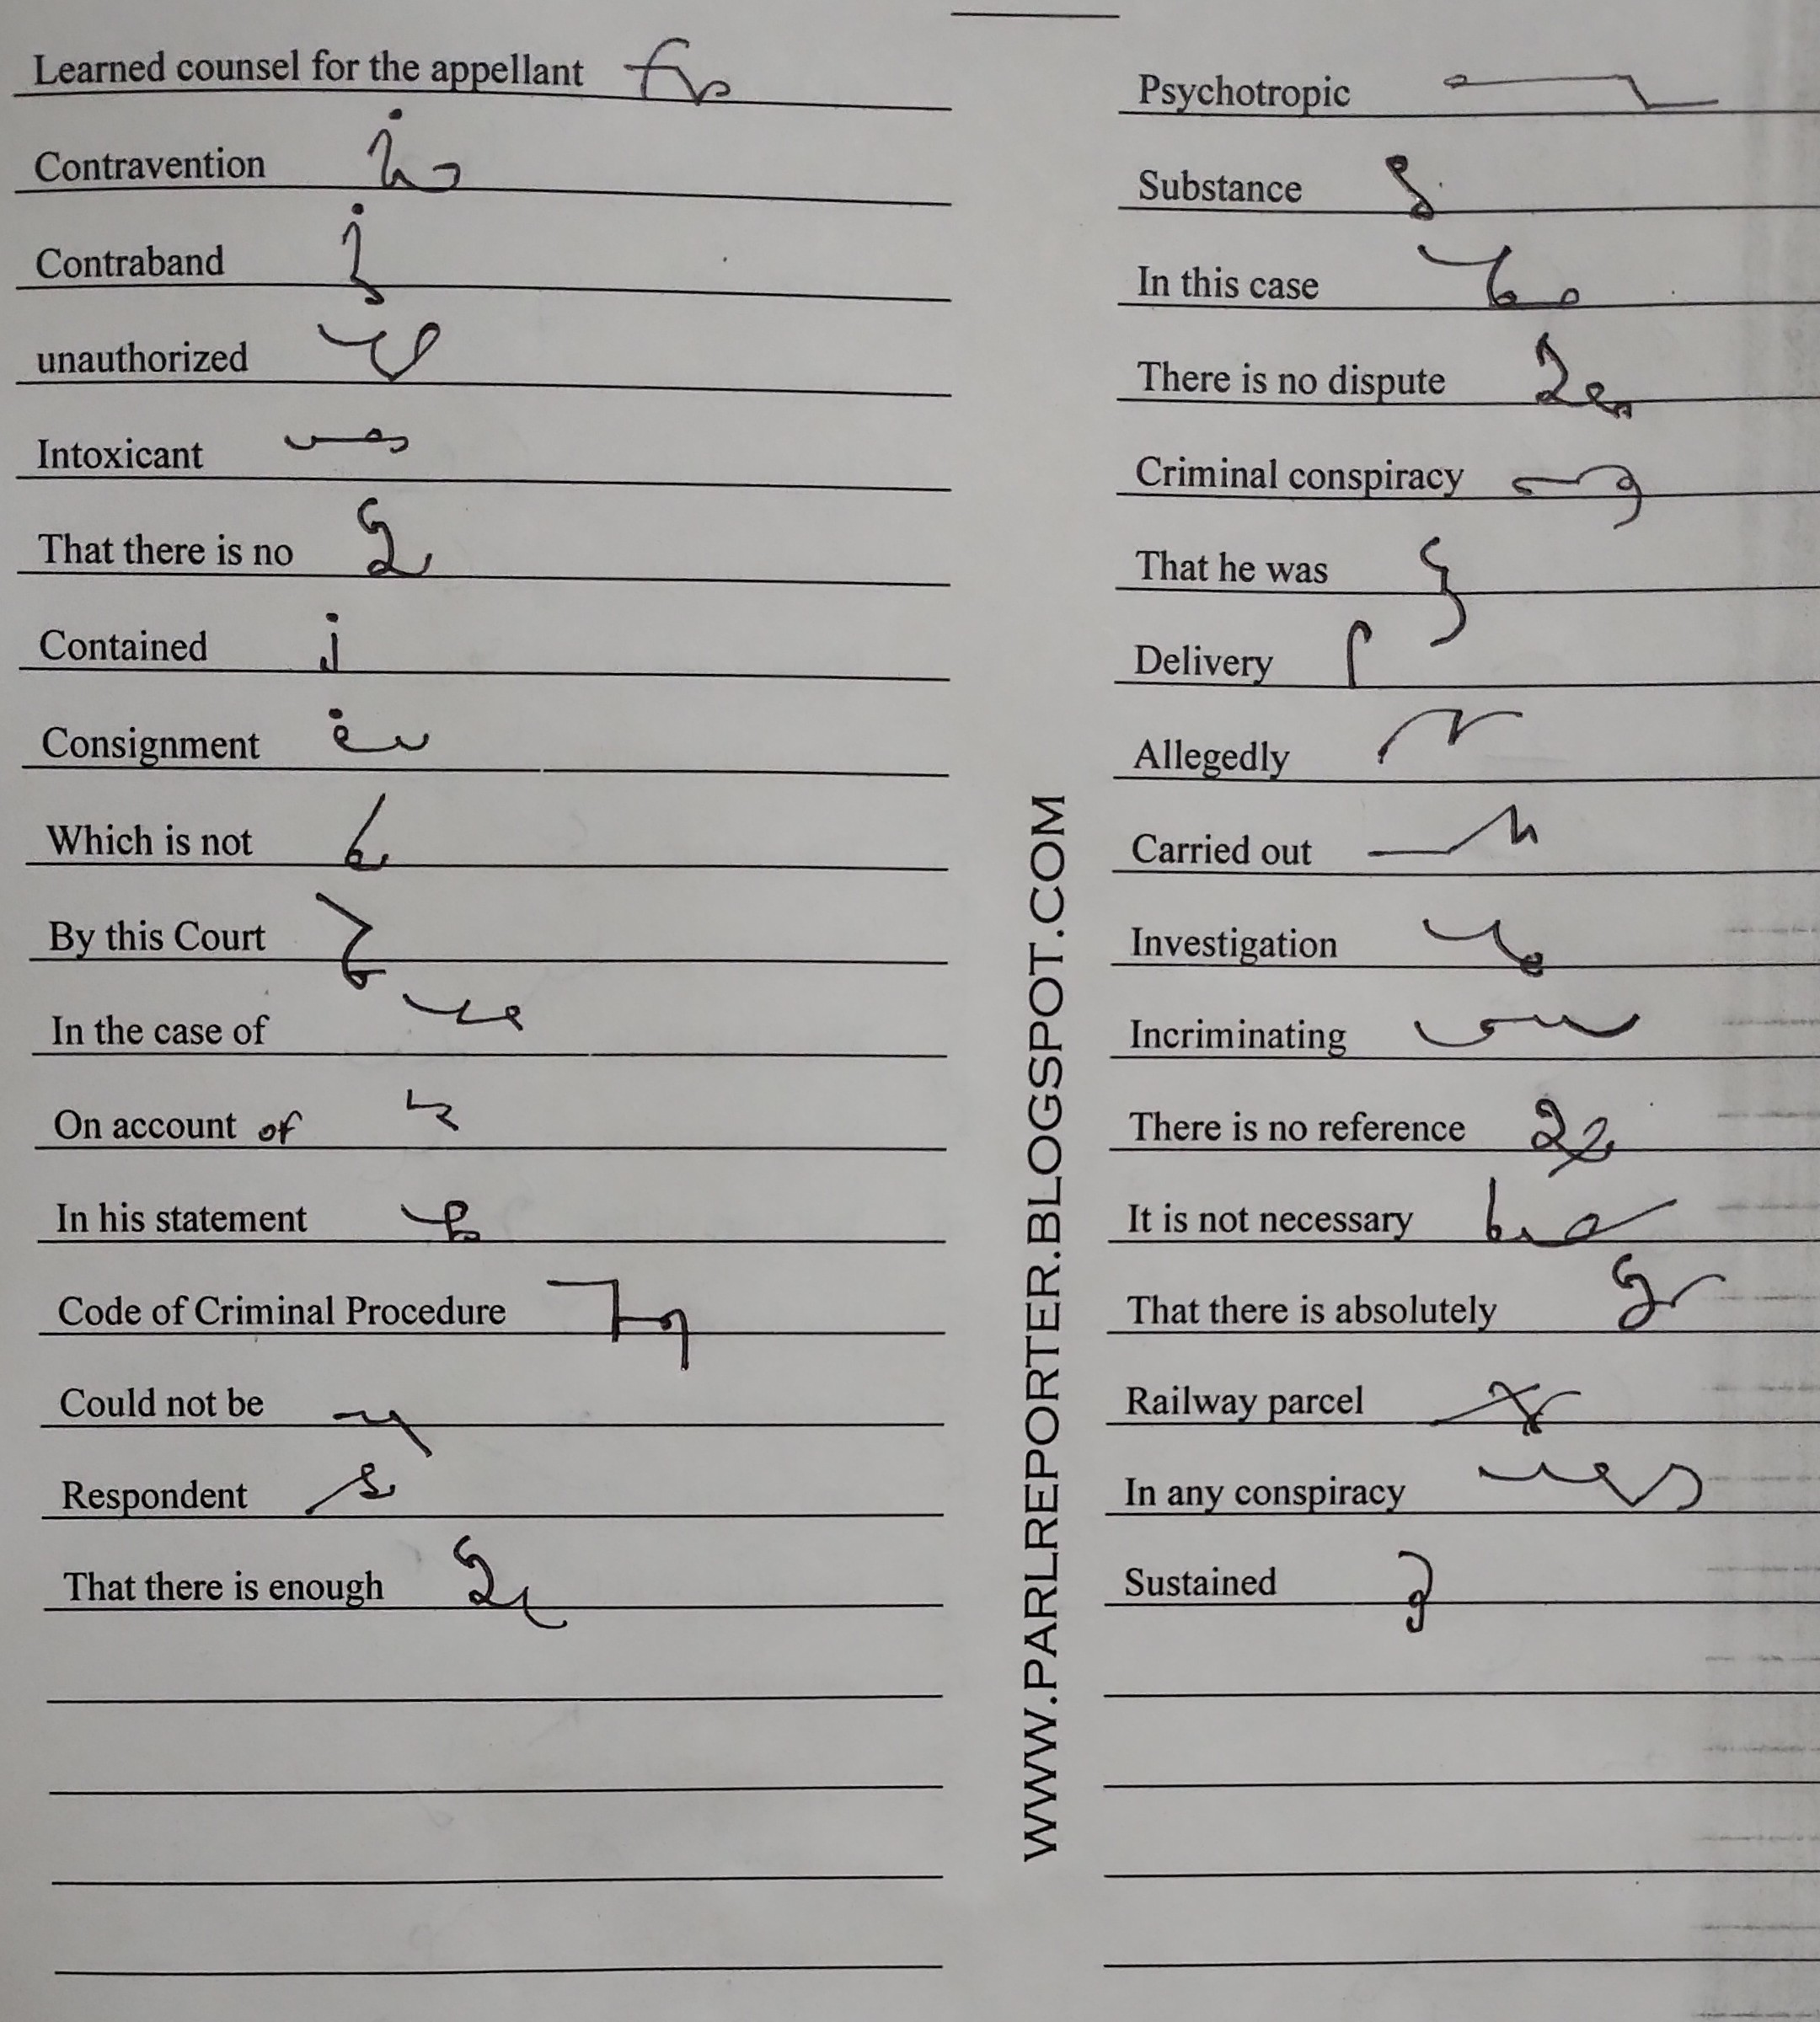 Learned counsel for the appellant
Contravention
Contraband
unauthorized
Intoxicant
That there is no
Contained
Consignment
Which is not
By this Court
In the case of
On account of
In his statement
Code of Criminal Procedure
Could not be
Respondent
That there is enough
WWW.PARLREPORTER.BLOGSPOT.COM
Psychotropic
Substance
In this case
There is no dispute
Criminal conspiracy
That he was
Delivery
Allegedly
Carried out
Investigation
Incriminating
There is no reference
It is not necessary
That there is absolutely
Railway parcel
In any conspiracy
Sustained